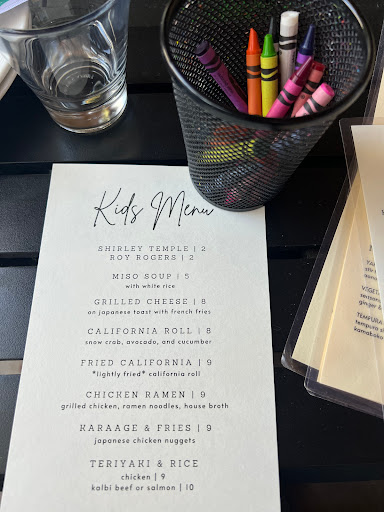 Kids Menu
SHIRLEY TEMPLE | 2
ROY ROGERS | 2
MISO SOUP | 5
with white rice
GRILLED CHEESE | 8
on japanese toast with french fries
CALIFORNIA ROLL | 8
snow crab, avocado, and cucumber
FRIED CALIFORNIA | 9
*lightly fried* california roll
CHICKEN RAMEN | 9
grilled chicken, ramen noodles, house broth
KARAAGE & FRIES | 9
japanese chicken nuggets
TERIYAKI & RICE
chicken | 9
kalbi beef or salmon | 10
ginger
TEMPURA
tempura